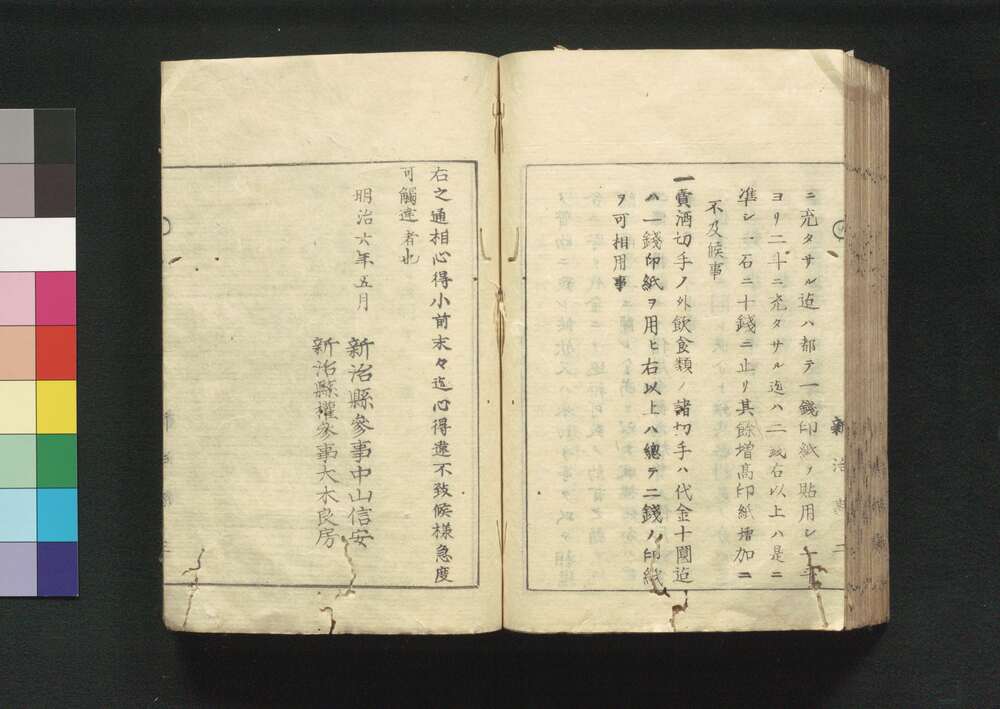 ニ充タサル迠ハ都テ一錢印紙ヲ貼用シ一斗
ヨリ二斗ニ充タサル迠ハ二錢右以上ハ是ニ
準シ一石ニ十錢ニ止リ其餘増髙印紙増加ニ
不及候事
一賣酒切手ノ外飲食類ノ諸切手ハ代金十圓迠
ハ一錢印紙ヲ用ヒ右以上ハ總テ二錢ノ印紙
ヲ可相用事
右之通相心得小前末々迠心得違不致候様急度
可觸達者也
明治六年五月
新治縣參事中山信安
新治縣權參事大木良房